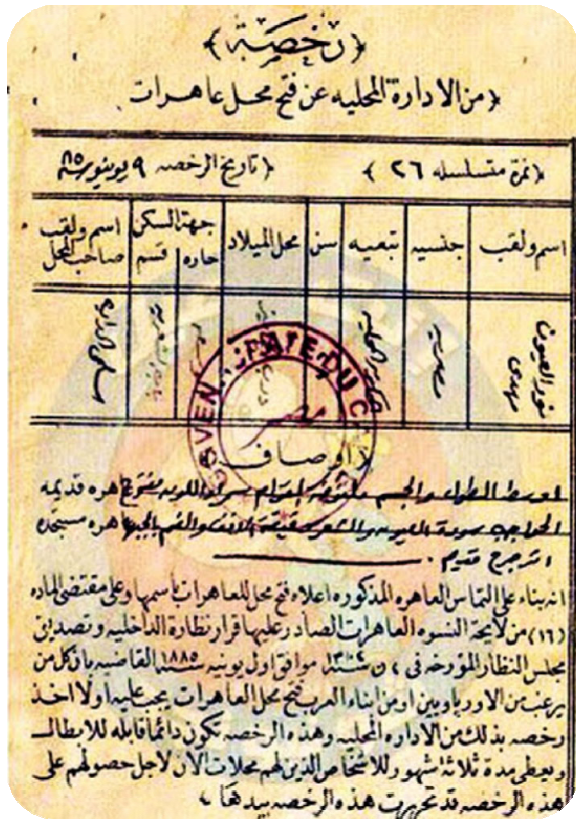 ﴿ رخصة ﴾
﴿ من الادارة المحليه عن فتح محل عاهرات
﴿ نمرة متسلسله ٢٦ ﴾ ﴿ تاريخ الرخصه ٩ يونيو سنة ٨٥
اسم ولقب جنسيه تبعيه سن محل الميلاد جهة السكن حاره قسم اسم ولقب صاحب المحل
نور العيون مهدى مصريه
GOVEN DU C
﴿ اوصاف
متوسط الطول والجسم اللون
الحواجب العيون والشعر الانف والفم
قديم .
انه بناء على التماس العاهره المذكوره اعلاه فتح محل للعاهرات باسمها وعلى مقتضى الماده
(١٦) من لايحة النسوه العاهرات الصادر عليها قرار نظارة الداخليه وتصديق
مجلس النظار المؤرخه فى ن سنة ١٣٠٢ موافق اول يونيه سنة ١٨٨٥ القاضيه بان كل من
يرغب من الاورباويين او من ابناء العرب فتح محل العاهرات يجب عليه اولا اخذ
رخصه بذلك من الاداره المحليه وهذه الرخصه تكون دائما قابله للابطال
ويعطى مدة ثلاثة اشهر للاشخاص الذين لهم محلات الان لاجل حصولهم على
هذه الرخصه قد تحررت هذه الرخصه بيدها